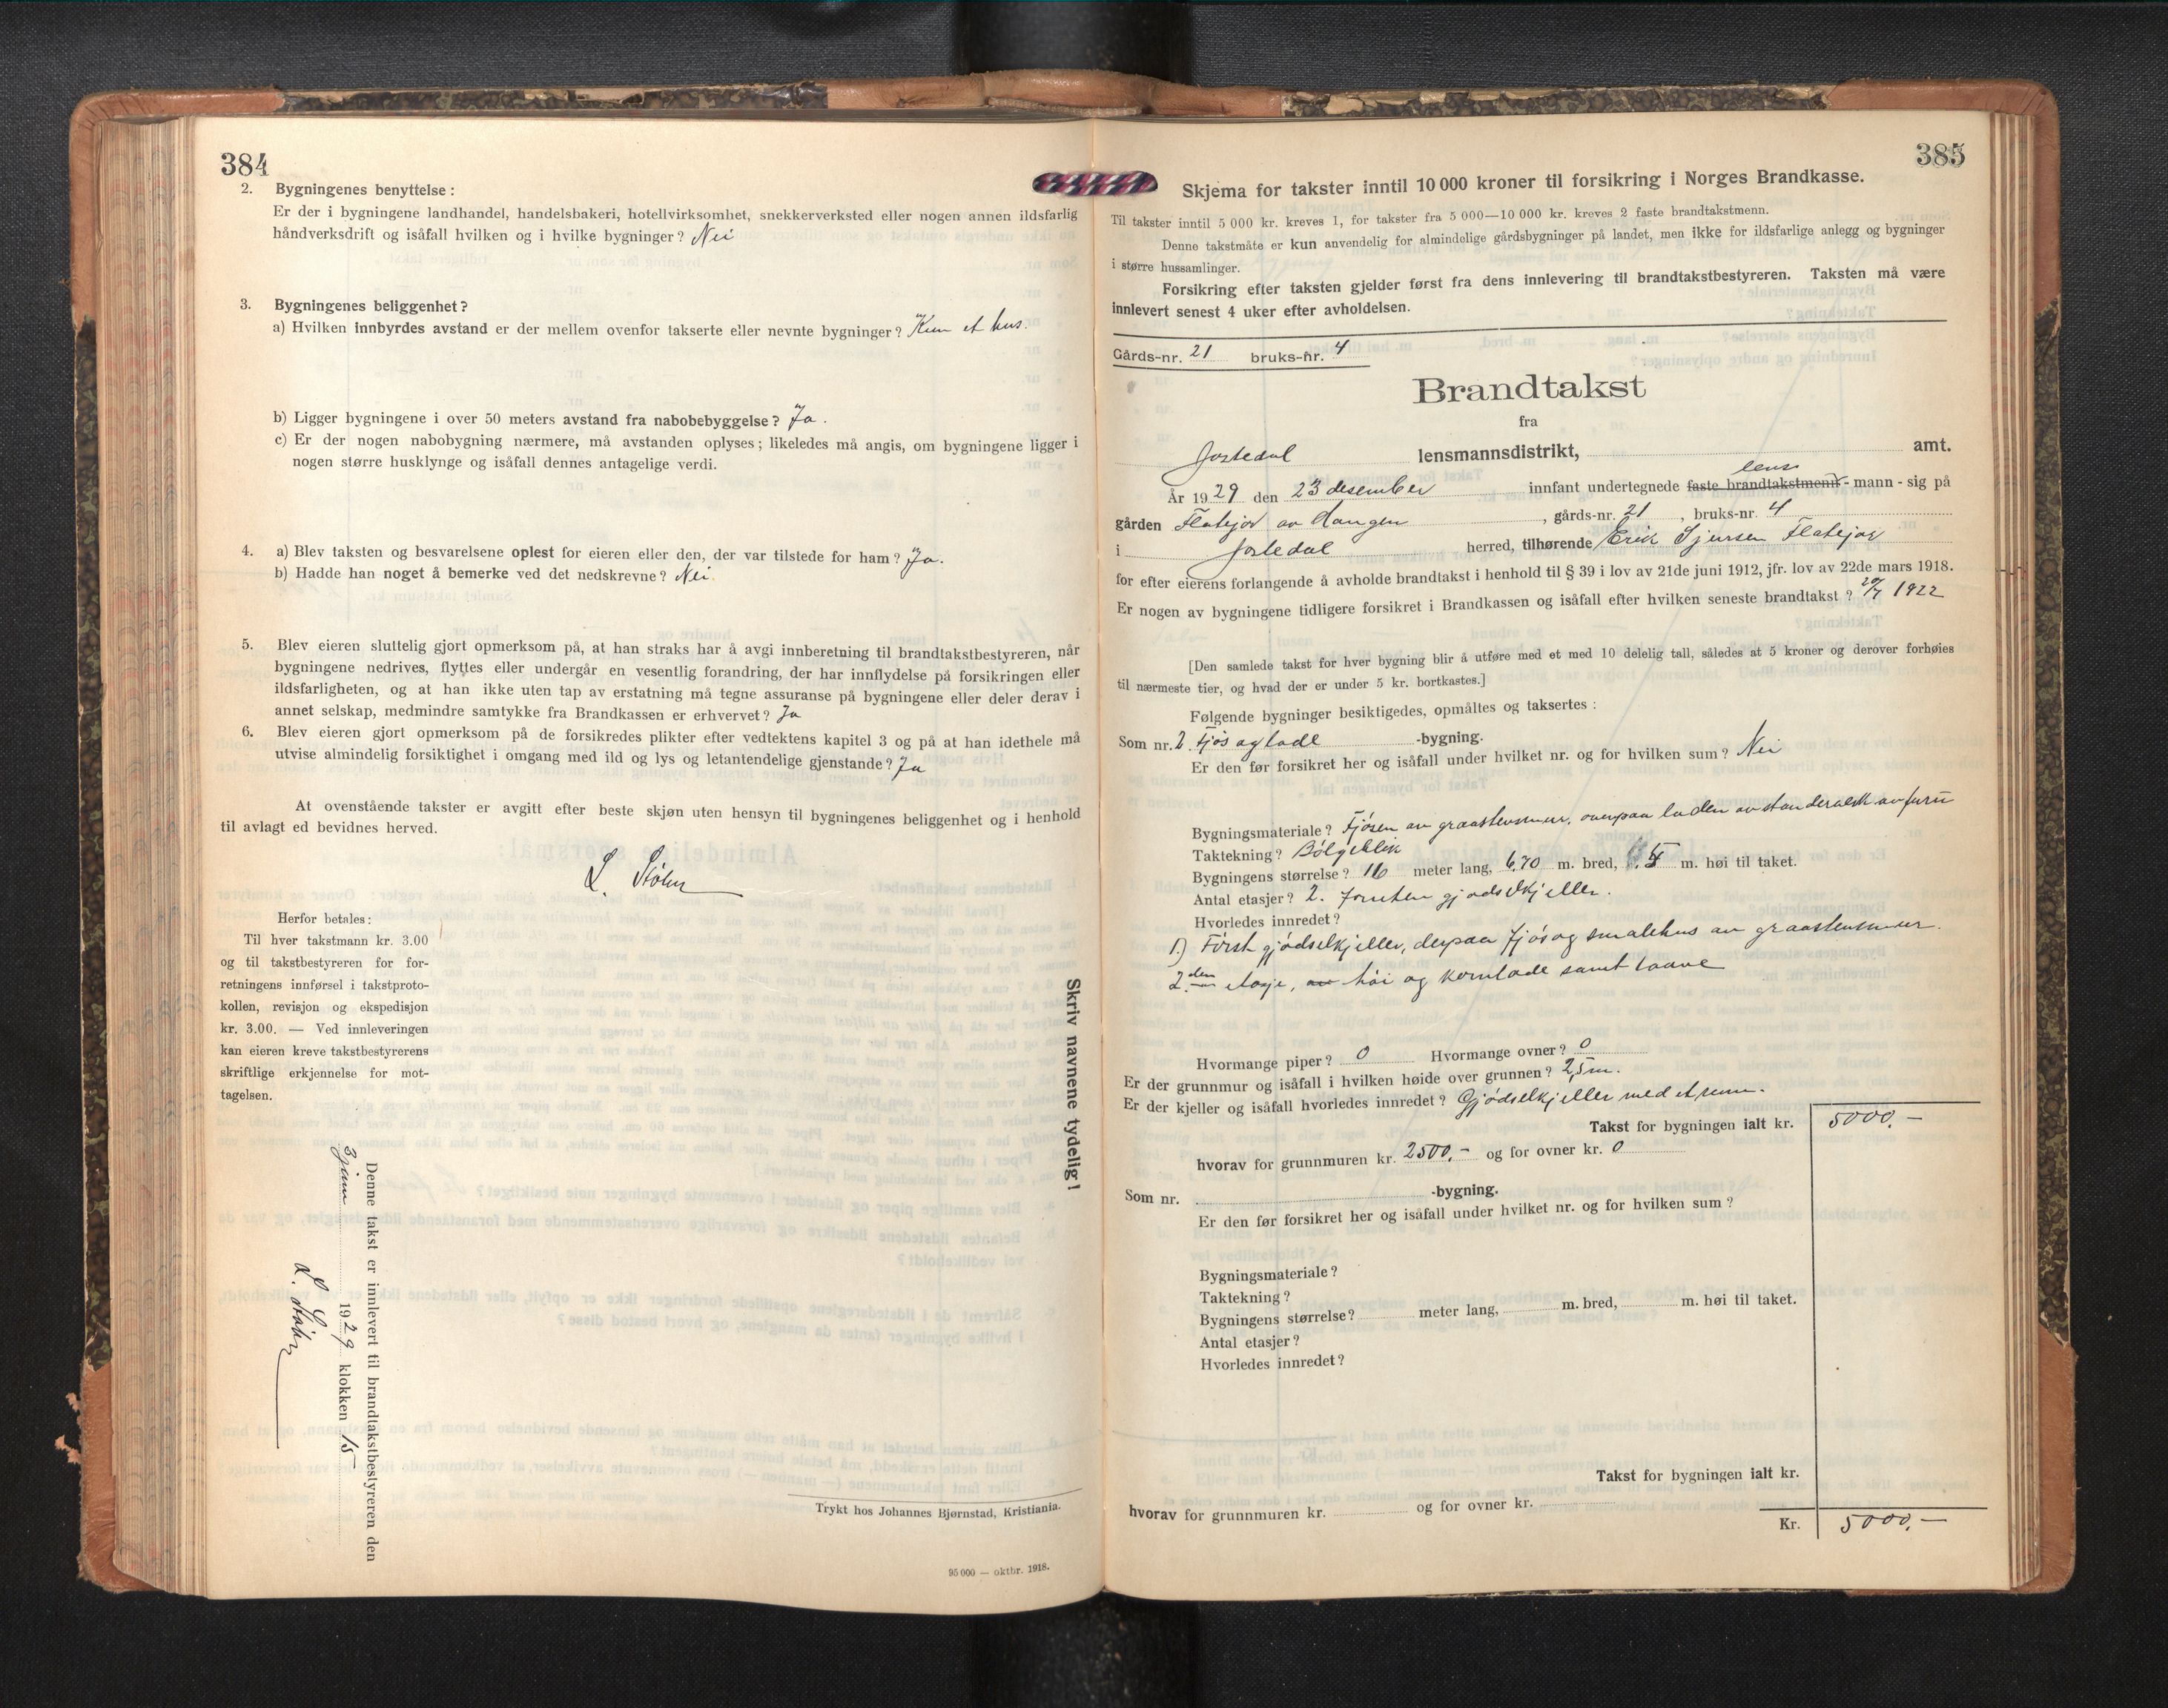 384
2. Bygningenes benyttelse:
Er der i bygningene landhandel, handelsbakeri, hotellvirksomhet, snekkerverksted eller nogen annen ildsfarlig
håndverksdrift og isåfall hvilken og i hvilke bygninger? Nei
3. Bygningenes beliggenhet?
a) Hvilken innbyrdes avstand er der mellem ovenfor takserte eller nevnte bygninger? Kun et hus.
b) Ligger bygningene i over 50 meters avstand fra nabobebyggelse? Ja.
c) Er der nogen nabobygning nærmere, må avstanden oplyses; likeledes må angis, om bygningene ligger i
nogen større husklynge og isåfall dennes antagelige verdi.
4. a) Blev taksten og besvarelsene oplest for eieren eller den, der var tilstede for ham? Ja.
b) Hadde han noget å bemerke ved det nedskrevne? Nei
5. Blev eieren sluttelig gjort opmerksom på, at han straks har å avgi innberetning til brandtakstbestyreren, når
bygningene nedrives, flyttes eller undergår en vesentlig forandring, der har innflydelse på forsikringen eller
ildsfarligheten, og at han ikke uten tap av erstatning må tegne assuranse på bygningene eller deler derav i
annet selskap, medmindre samtykke fra Brandkassen er erhvervet? Ja
6. Blev eieren gjort opmerksom på de forsikredes plikter efter vedtektens kapitel 3 og på at han idethele må
utvise almindelig forsiktighet i omgang med ild og lys og letantendelige gjenstande? Ja
At ovenstående takster er avgitt efter beste skjøn uten hensyn til bygningenes beliggenhet og i henhold
til avlagt ed bevidnes herved.
Herfor betales:
Til hver takstmann kr. 3.00
og til takstbestyreren for for-
retningens innførsel i takstproto-
kollen, revisjon og ekspedisjon
kr. 3.00. — Ved innleveringen
kan eieren kreve takstbestyrerens
skriftlige erkjennelse for mot-
tagelsen.
Denne takst er innlevert til brandtakstbestyreren den
3 juni 1929 klokken 15
Skriv navnene tydelig!
Trykt hos Johannes Bjørnstad, Kristiania.
95 000 — oktbr. 1918.
385
Skjema for takster inntil 10 000 kroner til forsikring i Norges Brandkasse.
Til takster inntil 5 000 kr. kreves 1, for takster fra 5 000—10 000 kr. kreves 2 faste brandtakstmenn.
Denne takstmåte er kun anvendelig for almindelige gårdsbygninger på landet, men ikke for ildsfarlige anlegg og bygninger
i større hussamlinger.
Forsikring efter taksten gjelder først fra dens innlevering til brandtakstbestyreren. Taksten må være
innlevert senest 4 uker efter avholdelsen.
Gårds-nr. 21 bruks-nr. 4
Brandtakst
fra
Jostedal lensmannsdistrikt, amt.
År 1929 den 23 desember innfant undertegnede faste brandtakstmenn lens - mann - sig på
gården Flatejor av Haugen, gårds-nr. 21, bruks-nr. 4
i Jostedal herred, tilhørende Erik Sjursen Flatejor
for efter eierens forlangende å avholde brandtakst i henhold til § 39 i lov av 21de juni 1912, jfr. lov av 22de mars 1918.
Er nogen av bygningene tidligere forsikret i Brandkassen og isåfall efter hvilken seneste brandtakst? 29/7 1922
[Den samlede takst for hver bygning blir å utføre med et med 10 delelig tall, således at 5 kroner og derover forhøies
til nærmeste tier, og hvad der er under 5 kr. bortkastes.]
Følgende bygninger besiktigedes, opmåltes og taksertes:
Som nr. 2. Fjøs og lade -bygning.
Er den før forsikret her og isåfall under hvilket nr. og for hvilken sum? Nei
Bygningsmateriale? Fjøsen av graastensmur, ovenpaa laden av standerverk av furu
Taktekning? Bølgeblik
Bygningens størrelse? 16 meter lang, 6,70 m. bred, 5 m. høi til taket.
Antal etasjer? 2. foruten gjødselkjeller.
Hvorledes innredet?
1.) Først gjødselkjeller, derpaa fjøs og smalehus av graastensmur.
2.den etasje, av høi og kornlade samt laave
Hvormange piper? 0 Hvormange ovner? 0
Er der grunnmur og isåfall i hvilken høide over grunnen? 2,5 m.
Er der kjeller og isåfall hvorledes innredet? Gjødselkjeller med et rum.
Takst for bygningen ialt kr. 5000,-
hvorav for grunnmuren kr. 2500,- og for ovner kr. 0
Som nr. -bygning.
Er den før forsikret her og isåfall under hvilket nr. og for hvilken sum?
Bygningsmateriale?
Taktekning?
Bygningens størrelse? meter lang, m. bred, m. høi til taket.
Antal etasjer?
Hvorledes innredet?
Takst for bygningen ialt kr.
hvorav for grunnmuren kr. og for ovner kr.
Kr. 5000,-